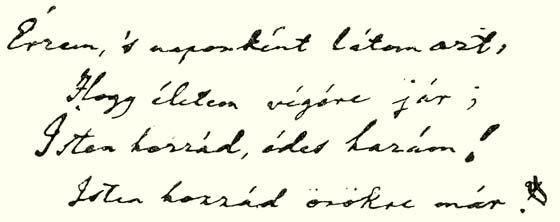 Érzem, 's naponként látom azt,
Hogy életem végóre jár;
Isten hozzád, édes hazám!
Isten hozzád örökre már.